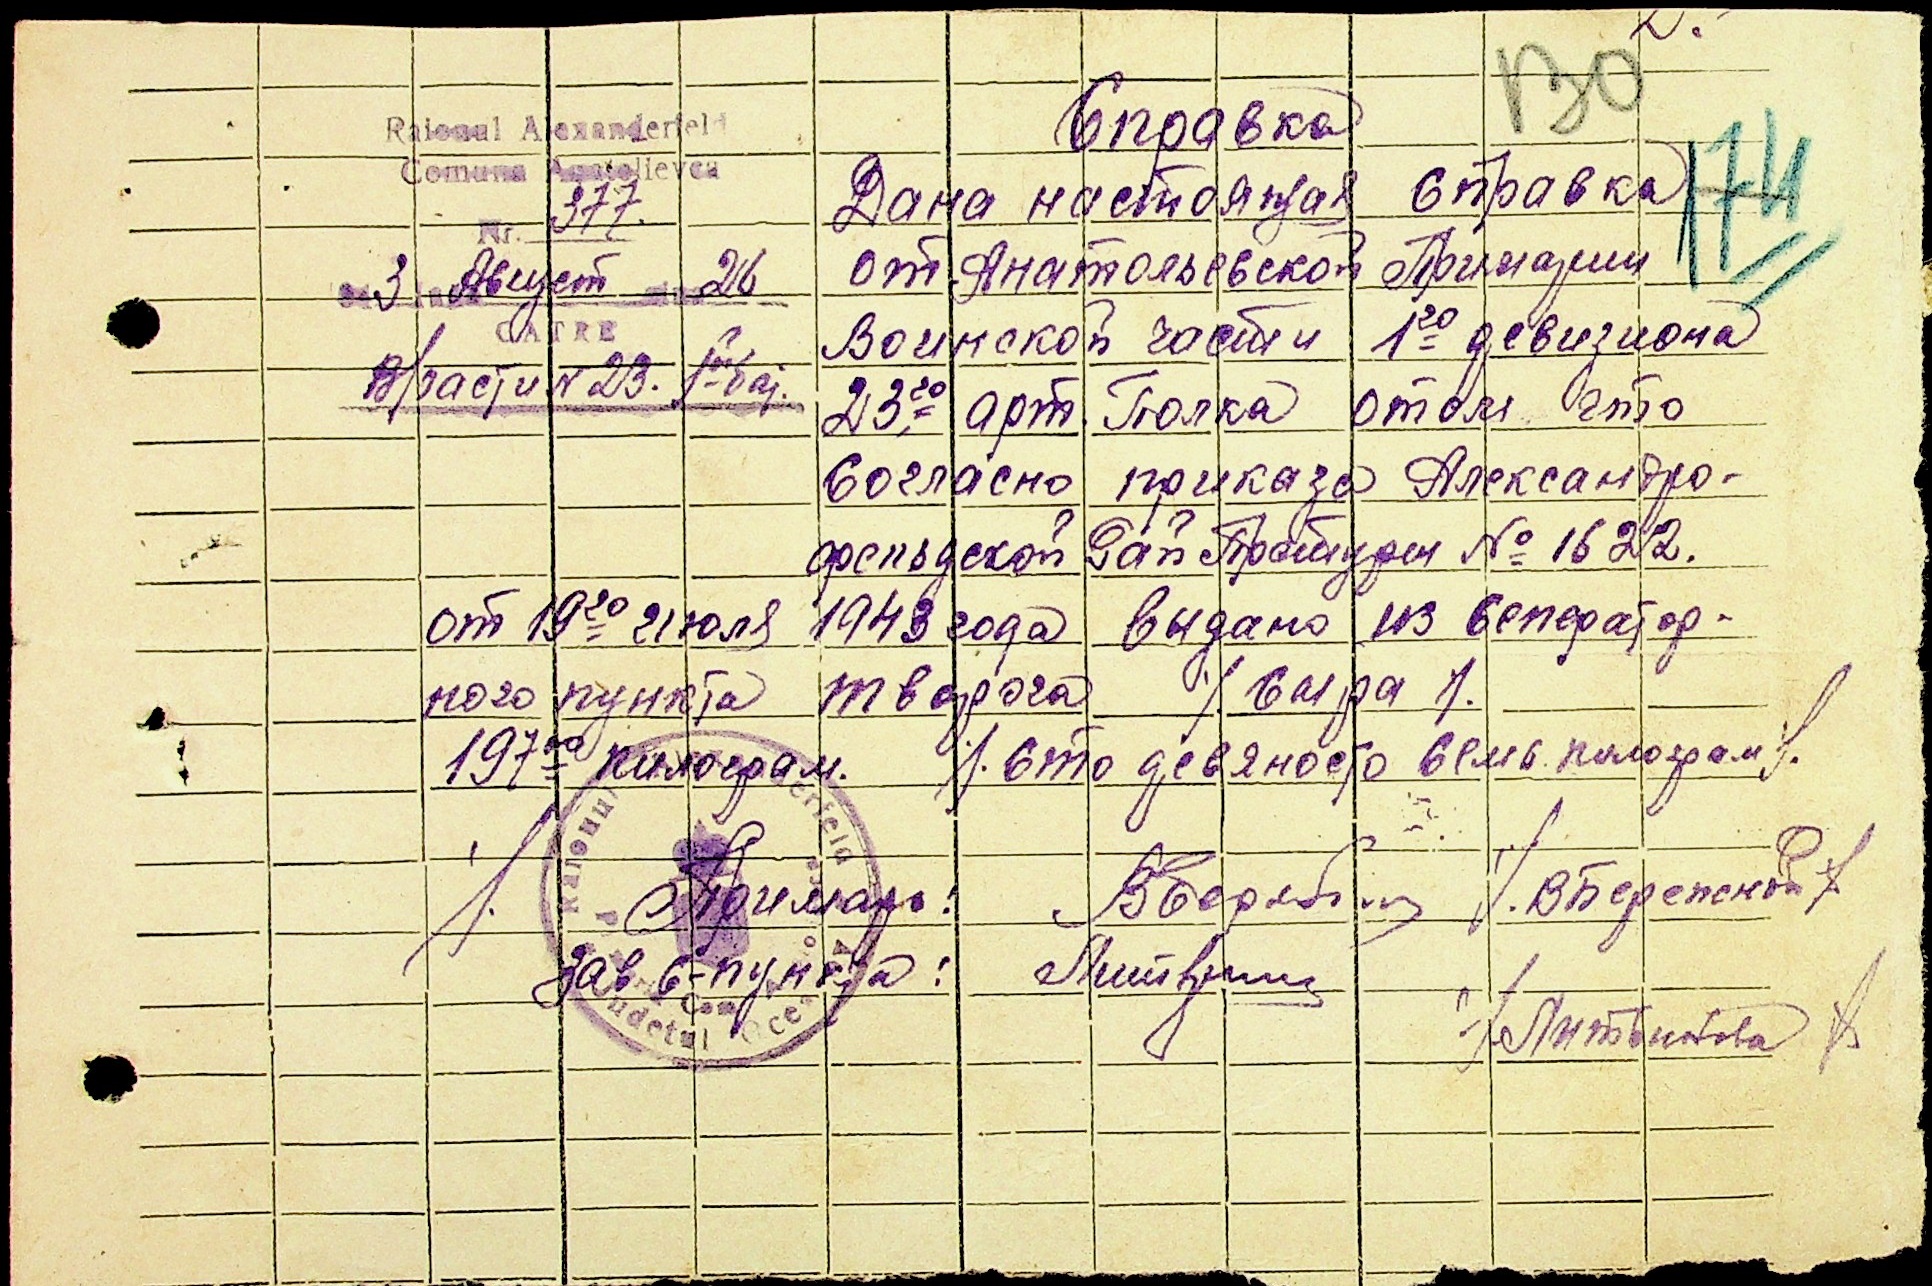 130
174
Raionul Alexanderfeld
Comuna Anatolievca
Nr. 377.
3 Август 26
CATRE
В/части N 23. 1го бат.
Справка
Дана настоящая справка
от Анатольевской Примарии
Воинской части 1го девизиона
23го арт. Полка отом что
согласно приказа Александро-
фельдской Рай Претуры № 1622.
от 19го июля 1943 года выдано из сепоратор-
ного пункта творога /. сыра /.
197но килограм. /. сто девяносто семь килограм /.
/. Примарь: /. В Березской /.
Зав с-пункта: Литвин
/. Литвинова /.
Raionul Alexanderfeld
Judetul Oceacov